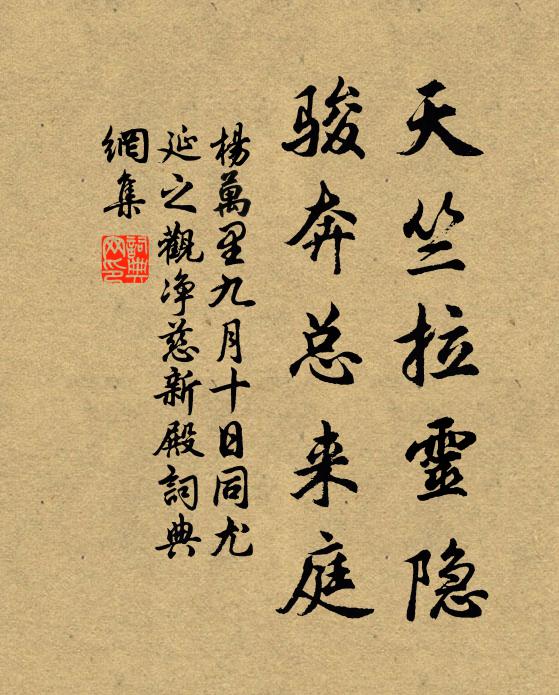 天竺拉靈隐
骏奔总来庭
楊萬里九月十日同尤
延之觀净慈新殿詞典
網集
詞典
网印